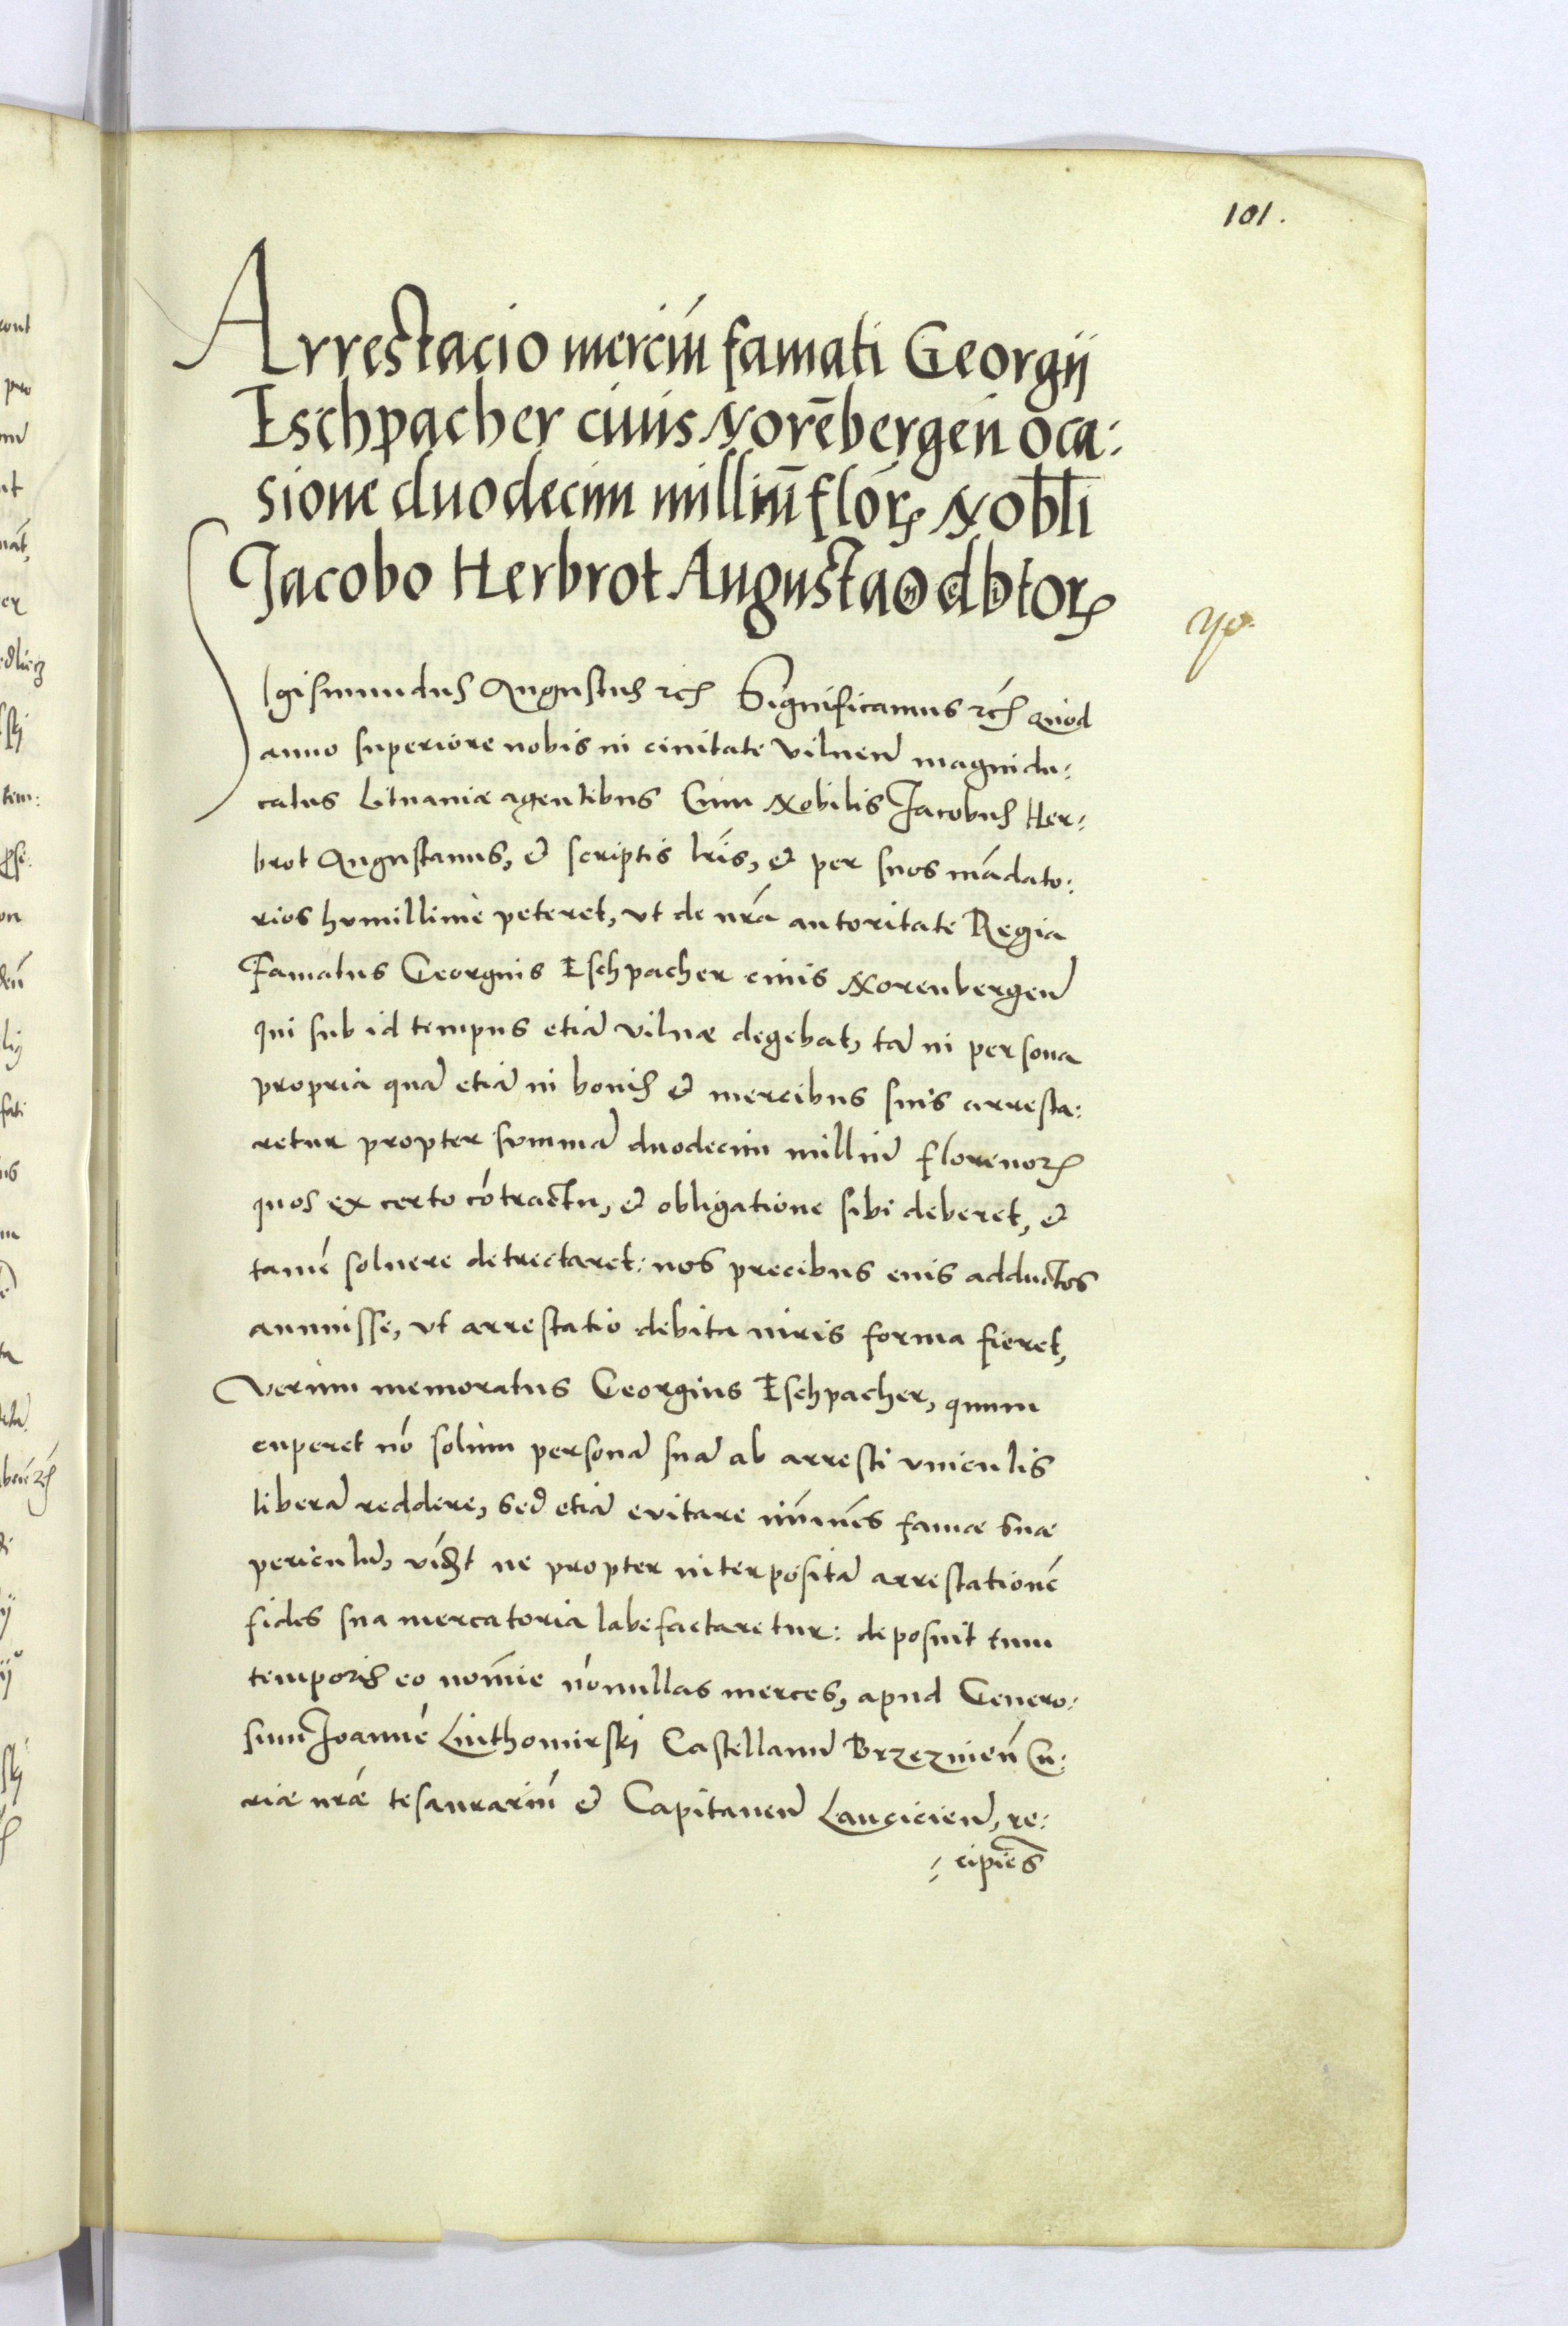 101.
Arrestacio merciũ famati Georgij
Eschpacher ciuis Norẽbergeñ oca:
sione duodecim milliũ florꝝ Nobli
Jacobo Herbrot Augustano dbitorꝝ
Sigismundus Augustus ꝛc̃ Significamus ꝛc̃ quod
anno superiore nobis in ciuitate Vilneñ magnidu:
catus Lituaniæ agentibus Cum Nobilis Jacobus Her:
brot Augustanus, et scriptis lr̃is, et per suos mãdato:
rios humillime peteret, vt de nr̃a autoritate Regia
Famatus Georgius Eschpacher ciuis Norenbergeñ
qui sub id tempus etiã Vilnæ degebat, tã in persona
propria quã etiã in bonis et mercibus suis arresta:
retur propter summã duodecim milliũ florenorꝝ
quos ex certo cõtractu, et obligatione sibi deberet, et
tamẽ soluere detrectaret: nos precibus eius adductos
annuisse, vt arrestatio debita iuris forma fieret,
Verum memoratus Georgius Eschpacher, quum
cuperet nõ solum personã suã ab arresti vinculis
liberã reddere, sed etiã euitare im̃inẽs famæ suæ
periculũ, vidꝫt ne propter interpositã arrestationẽ
fides sua mercatoria labefactaretur: deposuit tum
temporis eo nom̃ie nõnullas merces, apud Genero:
sum Joannẽ Luthomirski Castellanũ Brzezineñ Cu:
riæ nr̃æ tesaurariũ et Capitaneũ Lancicieñ, re:
: cipiẽs